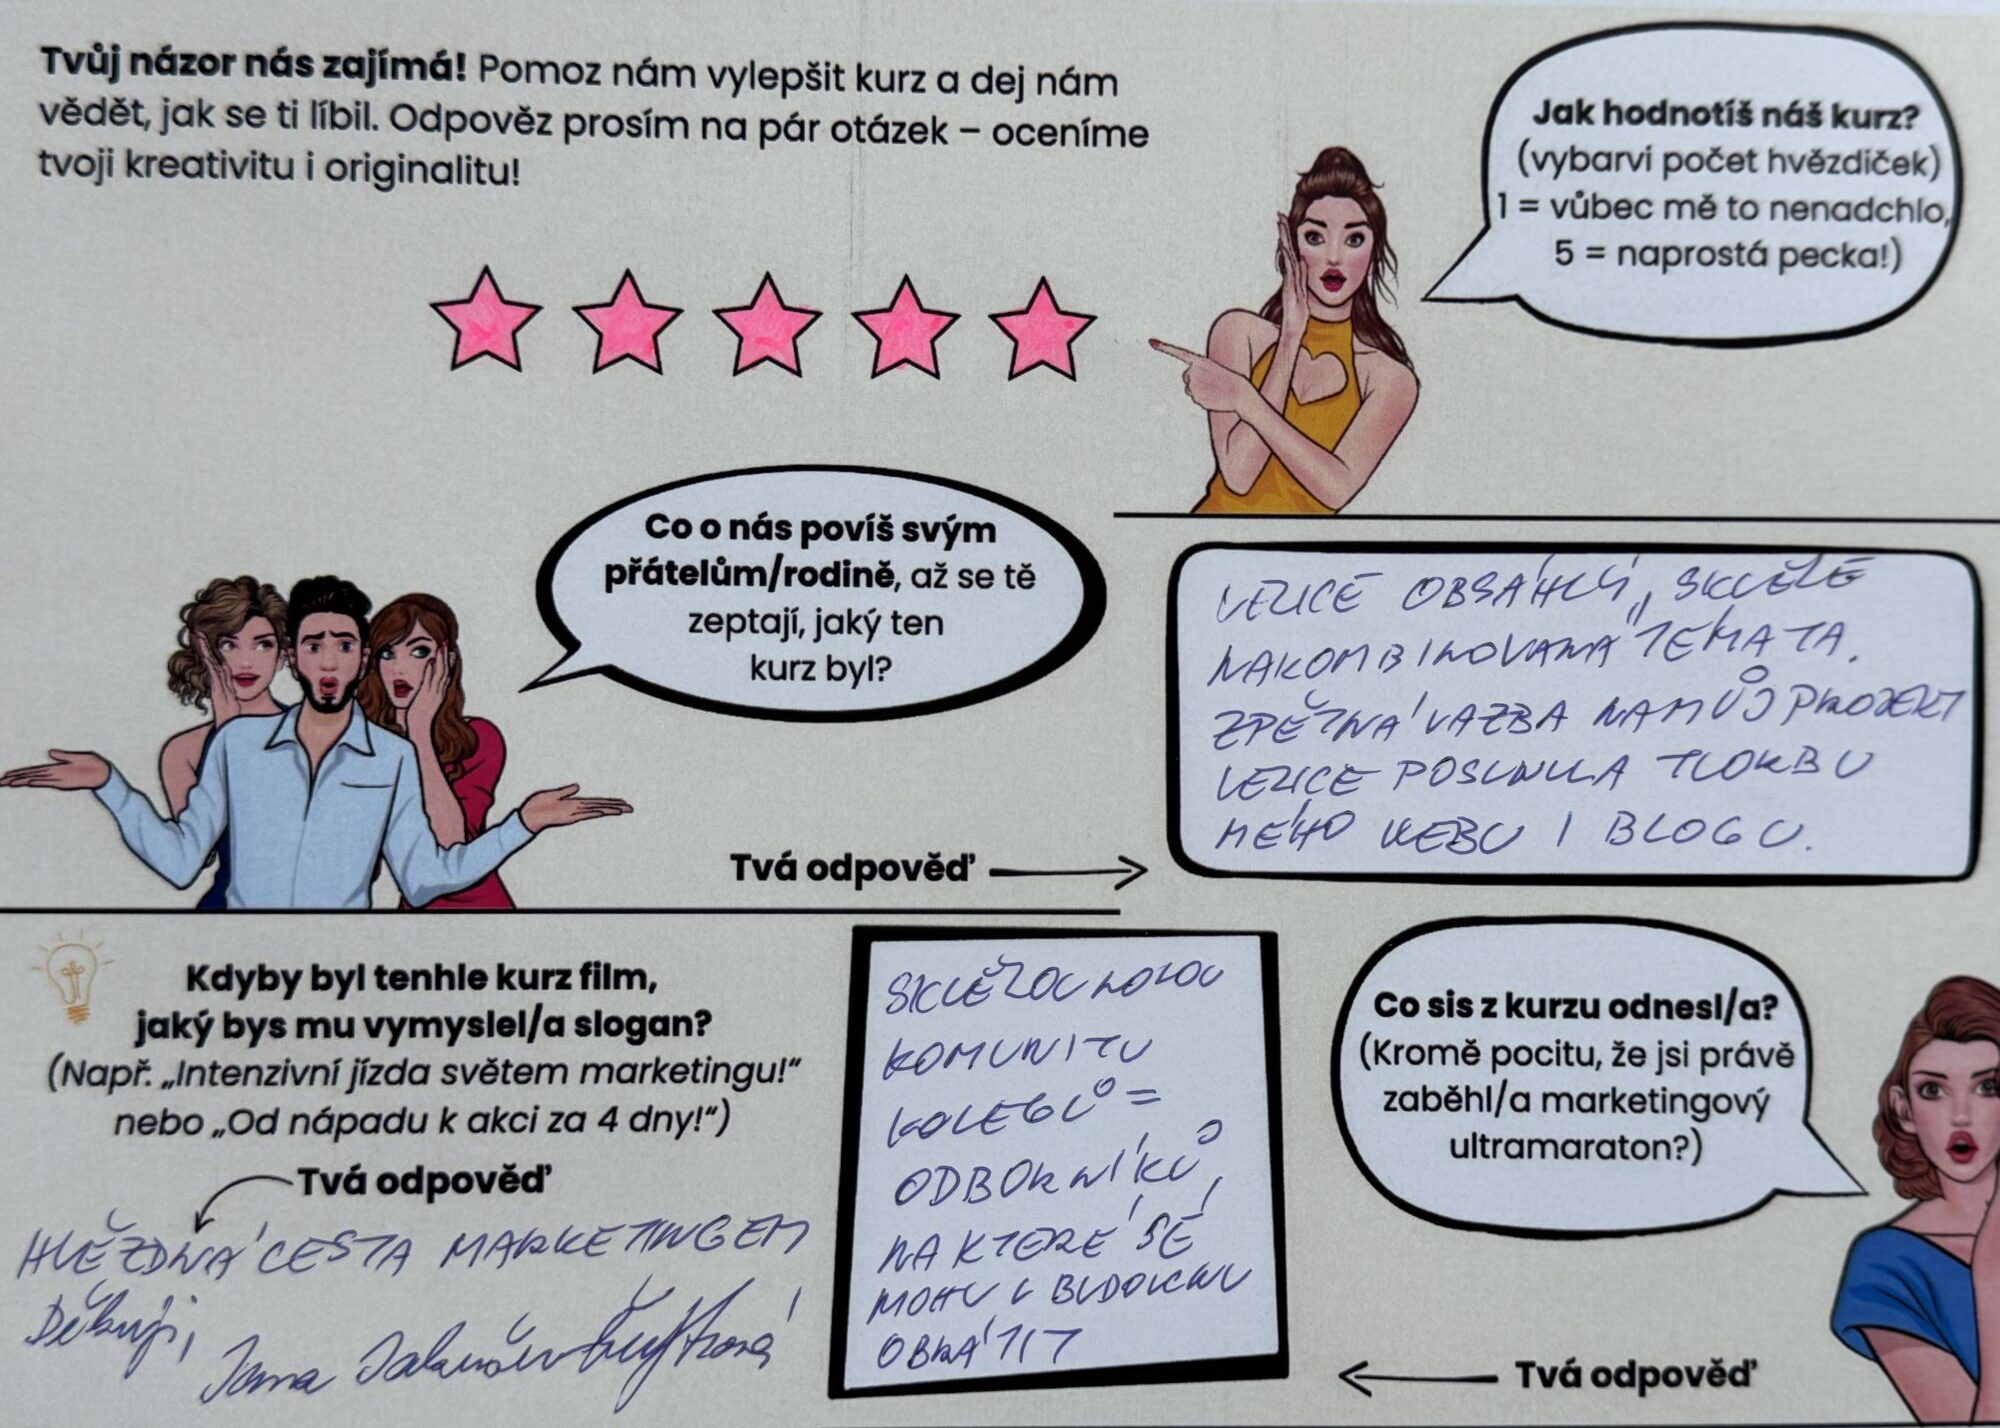 Tvůj názor nás zajímá! Pomoz nám vylepšit kurz a dej nám
vědět, jak se ti líbil. Odpověz prosím na pár otázek – oceníme
tvoji kreativitu i originalitu!
Jak hodnotíš náš kurz?
(vybarvi počet hvězdiček)
1 = vůbec mě to nenadchlo,
5 = naprostá pecka!)
Co o nás povíš svým
přátelům/rodině, až se tě
zeptají, jaký ten
kurz byl?
Tvá odpověď
VELICE OBSÁHLÝ, SKVĚLE
NAKOMBINOVANÁ TÉMATA.
ZPĚTNÁ VAZBA NA MŮJ PROJEKT
VELICE POSUNULA TVORBU
MÉHO WEBU I BLOGU.
Kdyby byl tenhle kurz film,
jaký bys mu vymyslel/a slogan?
(Např. „Intenzivní jízda světem marketingu!“
nebo „Od nápadu k akci za 4 dny!“)
Tvá odpověď
HVĚZDNÁ CESTA MARKETINGEM
Děkuji,
Jana
Co sis z kurzu odnesl/a?
(Kromě pocitu, že jsi právě
zaběhl/a marketingový
ultramaraton?)
Tvá odpověď
SKVĚLOU NOVOU
KOMUNITU
KOLEGŮ =
ODBORNÍKŮ,
NA KTERÉ SE
MOHU V BUDOUCNU
OBRÁTIT